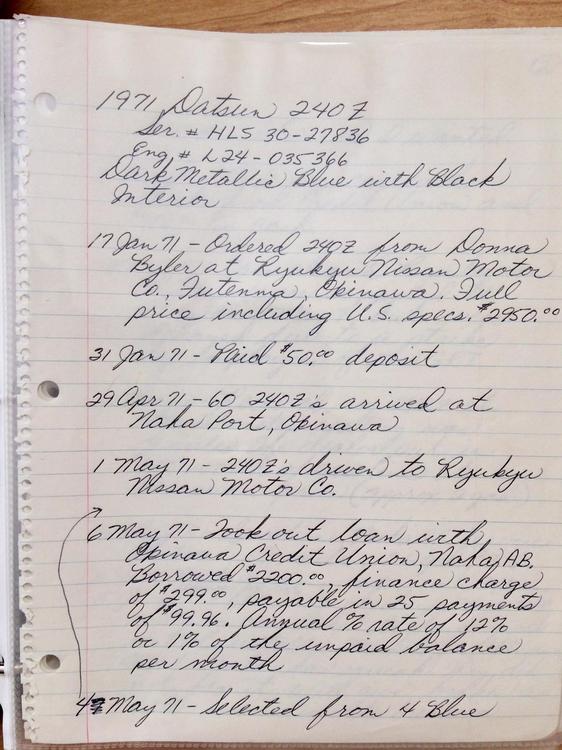 1971 Datsun 240Z
Ser. # HLS 30-27836
Eng # L24-035366
Dark Metallic Blue with Black
Interior
17 Jan 71 - Ordered 240Z from Donna
Byler at Ryukyu Nissan Motor
Co., Futenma, Okinawa. Full
price including U.S. specs. $2950.00
31 Jan 71 - Paid $50.00 deposit
29 Apr 71 - 60 240Z's arrived at
Naha Port, Okinawa
1 May 71 - 240Z's driven to Ryukyu
Nissan Motor Co.
6 May 71 - Took out loan with
Okinawa Credit Union, Naha AB.
Borrowed $2200.00, finance charge
of $299.00, payable in 25 payments
of $99.96. Annual % rate of 12%
or 1% of the unpaid balance
per month
4 May 71 - Selected from 4 Blue